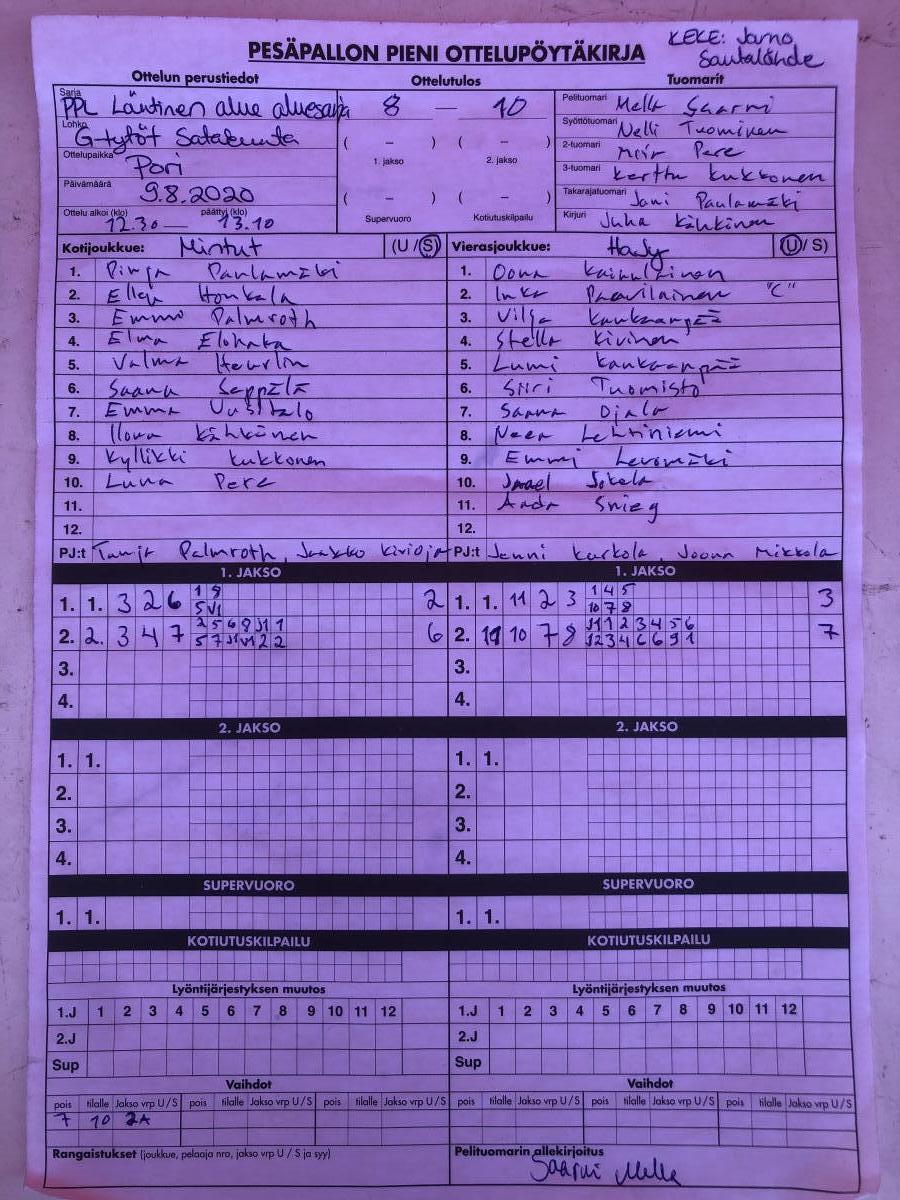 PESÄPALLON PIENI OTTELUPÖYTÄKIRJA
KEKE: Jarno
Sautalähde
Ottelun perustiedot
Ottelutulos
Tuomarit
Sarja
PPL Läntinen alue aluesarja
8 — 10
Pelituomari Mella Saarni
Lohko
G-tytöt Satakunta
( – ) ( – )
Syöttötuomari Nelli Tuominen
1. jakso 2. jakso
Ottelupaikka Pori
2-tuomari Pere
3-tuomari Kerttu Kukkonen
Päivämäärä 9.8.2020
( – ) ( – )
Takarajatuomari Jani Paulamäki
Ottelu alkoi (klo) päättyi (klo)
12.30 — 13.10
Supervuoro Kotiutuskilpailu
Kirjuri Juha Kähkönen
Kotijoukkue: Mintut (U / S)
Vierasjoukkue: (U / S)
1. Pinja Paulamäki
1. Oona
2. Ellen Honkala
2. Inka Paavilainen "C"
3. Emma Palmroth
3. Vilja Kankaanpää
4. Elma
4. Stella Kivinen
5. Valma Heurlin
5. Lumi Kankaanpää
6. Saana Seppälä
6. Siiri Tuomisto
7. Emma Uusitalo
7. Saana Ojala
8. Ilona Kähkönen
8. Neea Lehtiniemi
9. Kyllikki Kukkonen
9. Emmi Levomäki
10. Luna Pere
10. Jokela
11.
11. Aada
12.
12.
PJ:t Tanja Palmroth, Jaakko Kivioja
PJ:t Jenni Karkola, Joona Mikkola
1. JAKSO
1. JAKSO
1. 1. 3 2 6 2
1. 1. 11 2 3 1 4 5 3
10 7 8
2. 2. 3 4 7 6
2. 11 10 7 8 7
3.
3.
4.
4.
2. JAKSO
2. JAKSO
1. 1.
1. 1.
2.
2.
3.
3.
4.
4.
SUPERVUORO
SUPERVUORO
1. 1.
1. 1.
KOTIUTUSKILPAILU
KOTIUTUSKILPAILU
Lyöntijärjestyksen muutos
Lyöntijärjestyksen muutos
1.J 1 2 3 4 5 6 7 8 9 10 11 12
1.J 1 2 3 4 5 6 7 8 9 10 11 12
2.J
2.J
Sup
Sup
Vaihdot
Vaihdot
pois tilalle Jakso vrp U / S pois tilalle Jakso vrp U / S pois tilalle Jakso vrp U / S
pois tilalle Jakso vrp U / S pois tilalle Jakso vrp U / S pois tilalle Jakso vrp U / S
7 10 2A
Rangaistukset (joukkue, pelaaja nro, jakso vrp U / S ja syy)
Pelituomarin allekirjoitus
Saarni Mella